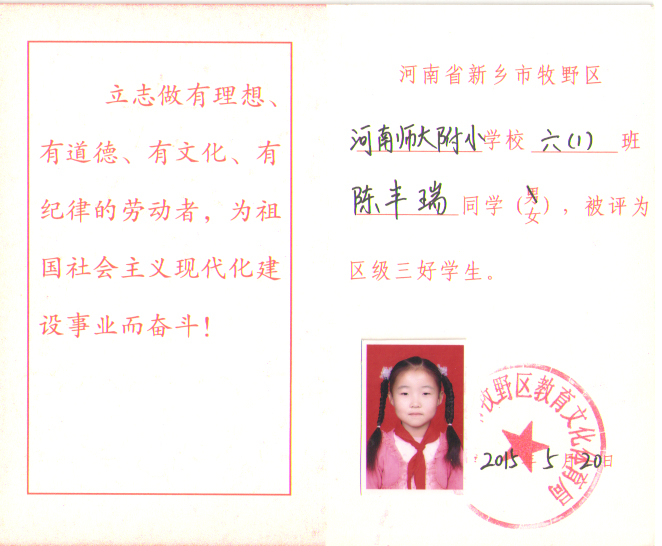 立志做有理想、
有道德、有文化、有
纪律的劳动者，为祖
国社会主义现代化建
设事业而奋斗！
河南省新乡市牧野区
河南师大附小学校 六(1) 班
陈丰瑞同学（男女），被评为
区级三好学生。
牧野区教育文化体育局
2015年5月20日